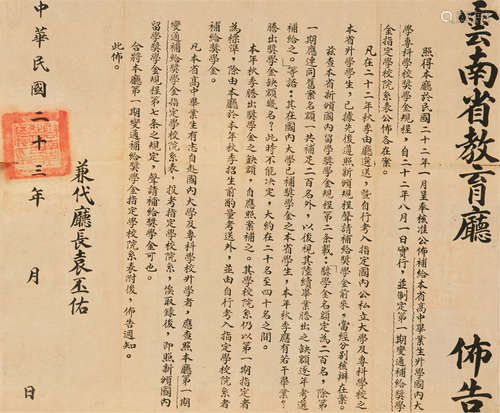 雲南省教育廳 佈告
照得本廳於民國二十二年一月呈奉核准公佈補給本省高中畢業生升學國內大
學專科學校獎學金規程,自二十二年八月一日實行,並制定第一期變通補給獎學
金指定學校院系表公佈各在案。
凡在二十二年秋季由廳選送,暨自行考入指定國內公私立大學及專科學校之
本省升學學生,已據先後遵照新頒規程聲請補給獎學金前來,當經分別核辦在案。
茲查本省新頒國內留學獎學金規程第二條載:獎學金名額定為二百名,除第
一期應連同舊案名額一共補足二百名外,以後視其陸續畢業騰出之缺額逐年考選
補給之。等語:其在國內大學已補獎學金之本省學生,本年秋季應有若干畢業?
騰出獎學金缺額幾名?此時不能決定,大約在二十名至四十名之間。
本年秋季騰出獎學金之缺額,自應照案補之。其學校院系仍以第一期指定者
為標準,除由本廳於本年秋季招生前酌量考送外,並由自行考入指定學校院系者
凡本省高中畢業生有志自赴國內大學及專科學校升學者,應查照本廳第一期
變通補給獎學金指定學校院系表,投考指定學校院系,俟取錄後,即照新頒國內
留學獎學金規程第七條之規定,聲請補給獎學金可也。
合將本廳第一期變通補給獎學金指定學校院系表附後,佈告通知。
此佈。
兼代廳長袁丕佑
中華民國二十三年 月 日